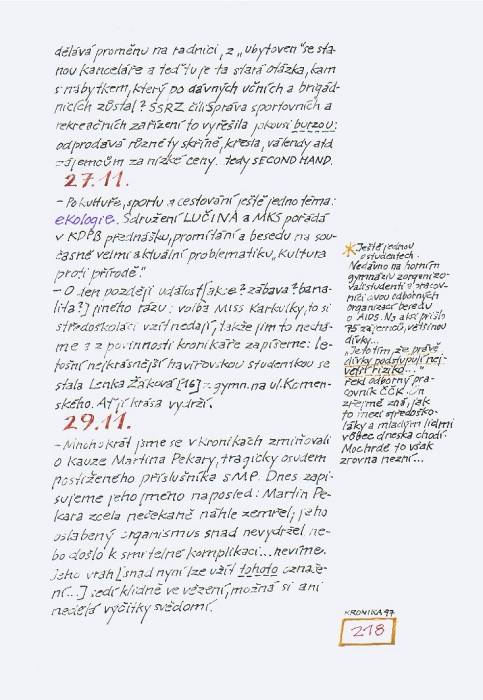 dělává proměnu na radnici, z „ubytoven" se sta-
nou kanceláře a teď tu je ta stará otázka, kam
s nábytkem, který po dávných učních a brigád-
nících zůstal? SSRZ čili Správa sportovních a
rekreačních zařízení to vyřešila jakousi burzou:
odprodává různé ty skříně, křesla, válendy atd.
zájemcům za nízké ceny. tedy SECOND HAND.
27.11.
- Po kultuře, sportu a cestování ještě jedno téma:
ekologie. Sdružení LUČINA a MKS pořádá
v KDPB přednášku, promítání a besedu na sou-
časné velmi aktuální problematiku „Kultura
proti přírodě."
- O den později událost [akce? zábava? bana-
lita?] jiného rázu: volba Miss Karkulky, to si
středoškoláci vzít nedají, takže jim to nechá-
me a z povinnosti kronikáře zapíšeme: le-
tošní nejkrásnější havířovskou studentkou se
stala Lenka Žáková [16] z gymn. na ul. Komen-
ského. Ať jí krása vydrží.
29.11.
- Mnohokrát jsme se v kronikách zmiňovali
o kauze Martina Pekary, tragicky osudem
postiženého příslušníka s MP. Dnes zapi-
sujeme jeho jméno naposled: Martin Pe-
kara zcela nečekaně náhle zemřel; jeho
oslabený organismus snad nevydržel ne-
bo došlo k smrtelné komplikaci... nevíme.
Jeho vrah [snad nyní lze užít tohoto označe-
ní...] sedí klidně ve vězení, možná si ani
nedělá výčitky svědomí.
* Ještě jednou
o studentech.
Nedávno na horním
gymnáziu zorganizo-
vali studenti s pracov-
nicí dvou odborných
organizací besedu
o AIDS. Na akci přišlo
75 zájemců, většinou
dívky...
„Je to tím, že právě
dívky podstupují nej-
větší riziko..."
řekl odborný pra-
covník ČČK. On
zřejmě zná, jak
to mezi středoško-
láky a mladými lidmi
vůbec dneska chodí.
Moc hrdě to však
zrovna nezní...
KRONIKA 97
218